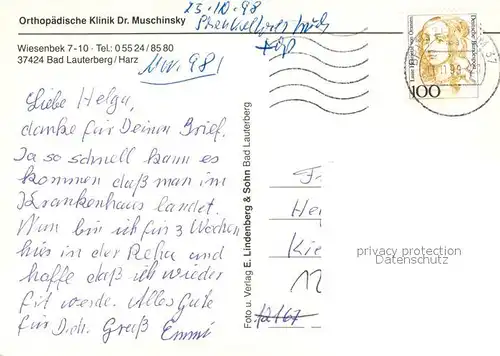 Orthopädische Klinik Dr. Muschinsky
Wiesenbek 7-10 · Tel.: 0 55 24 / 85 80
37424 Bad Lauterberg / Harz
23.10.98
+Op
Nov. 98
Liebe Helga,
danke für Deinen Brief.
Ja so schnell kann es
kommen daß man im
Krankenhaus landet.
Nun bin ich für 3 Wochen
hier in der Reha und
hoffe daß ich wieder
fit werde. Alles Gute
für Dich. Gruß Emmi
Foto u. Verlag E. Lindenberg & Sohn Bad Lauterberg
100
Deutsche Bundespost
Fr
He
Kie
12167
privacy protection
Datenschutz